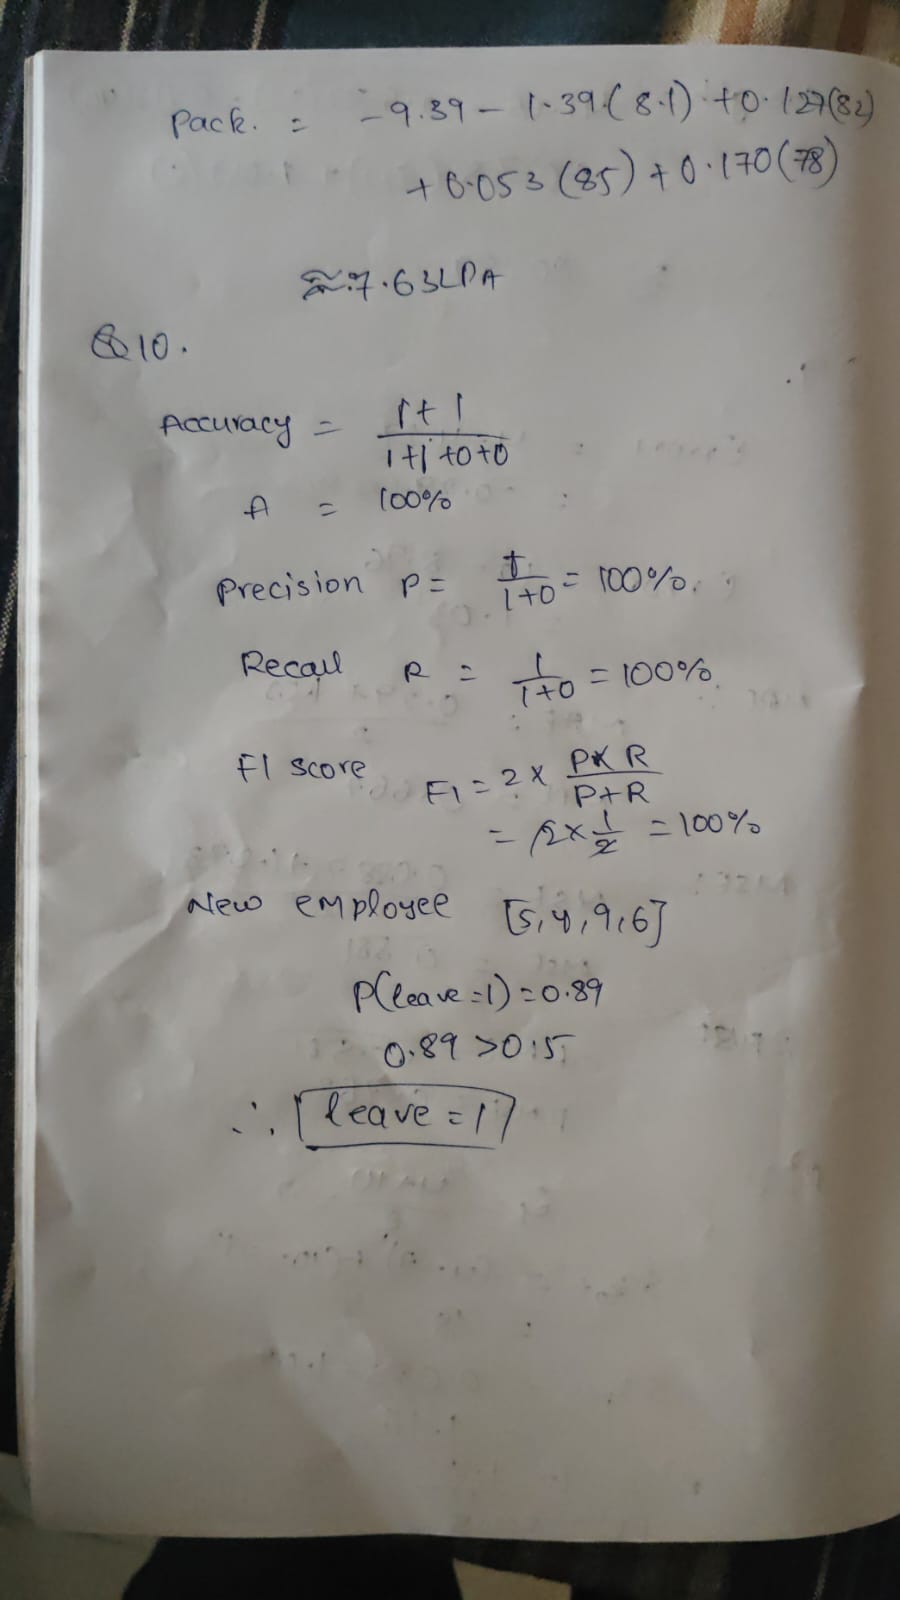 Pack. = -9.39 - 1.39(8.1) + 0.127(82)
+ 0.053(85) + 0.170(78)
≈ 7.63LPA
Q10.
Accuracy = 1+1
1+1+0+0
A = 100%
Precision P = 1/1+0 = 100%.
Recall R = 1/1+0 = 100%.
F1 score F1 = 2 x P x R / P+R
= 2 x 1/2 = 100%
New employee [5,4,9,6]
P(leave=1) = 0.89
0.89 > 0.5
∴ leave = 1